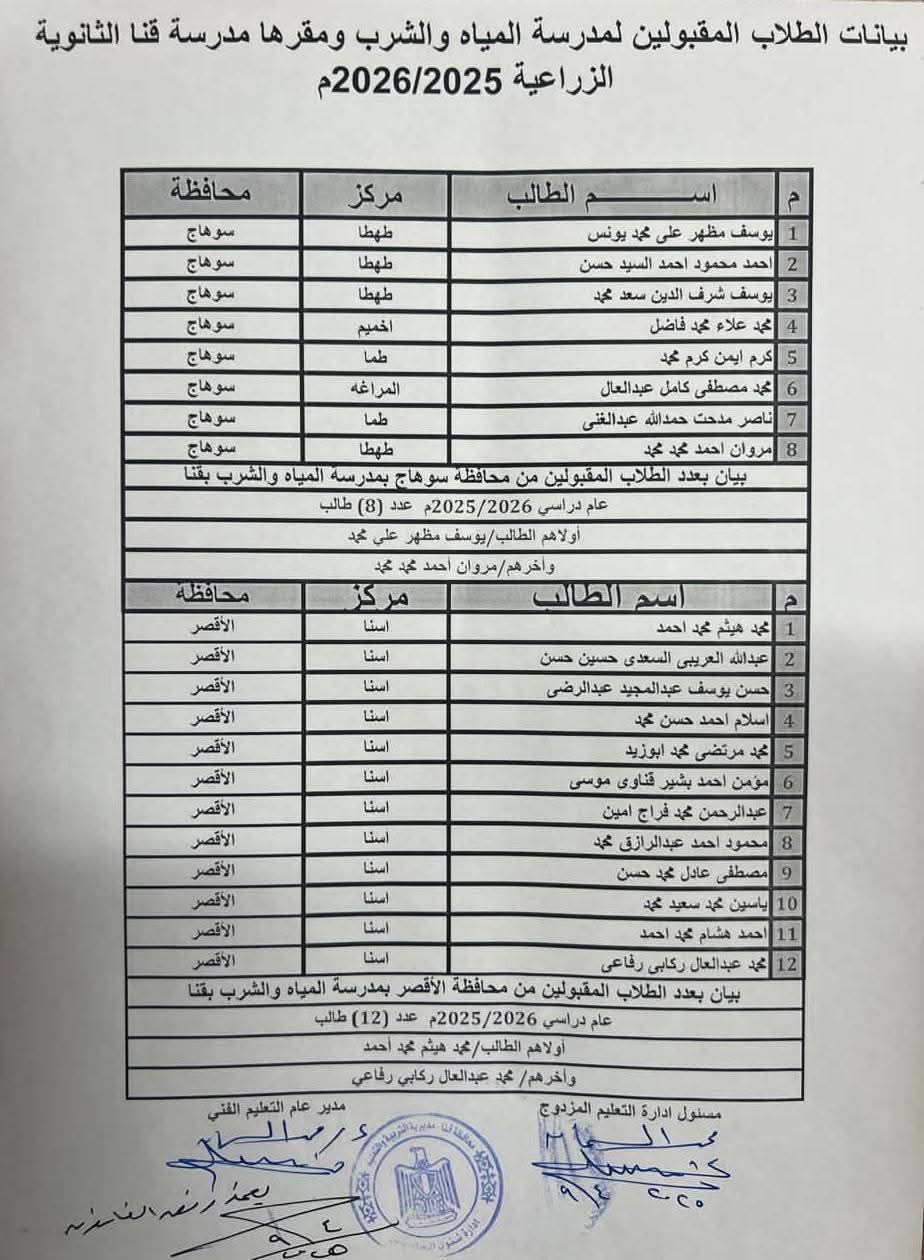 بيانات الطلاب المقبولين لمدرسة المياه والشرب ومقرها مدرسة قنا الثانوية
الزراعية 2026/2025م
م اســــــم الطالب مركز محافظة
1 يوسف مظهر على محمد يونس طهطا سوهاج
2 احمد محمود احمد السيد حسن طهطا سوهاج
3 يوسف شرف الدين سعد محمد طهطا سوهاج
4 محمد علاء محمد فاضل اخميم سوهاج
5 كرم ايمن كرم محمد طما سوهاج
6 محمد مصطفى كامل عبدالعال المراغه سوهاج
7 ناصر مدحت حمدالله عبدالغنى طما سوهاج
8 مروان احمد محمد محمد طهطا سوهاج
بيان بعدد الطلاب المقبولين من محافظة سوهاج بمدرسة المياه والشرب بقنا
عام دراسي 2025/2026م عدد (8) طالب
أولاهم الطالب/يوسف مظهر علي محمد
وأخرهم/مروان أحمد محمد محمد
م اسم الطالب مركز محافظة
1 محمد هيثم محمد احمد اسنا الأقصر
2 عبدالله العريبى السعدى حسين حسن اسنا الأقصر
3 حسن يوسف عبدالمجيد عبدالرضى اسنا الأقصر
4 اسلام احمد حسن محمد اسنا الأقصر
5 محمد مرتضى محمد ابوزيد اسنا الأقصر
6 مؤمن احمد بشير قناوى موسى اسنا الأقصر
7 عبدالرحمن محمد فراج امين اسنا الأقصر
8 محمود احمد عبدالرازق محمد اسنا الأقصر
9 مصطفى عادل محمد حسن اسنا الأقصر
10 ياسين محمد سعيد محمد اسنا الأقصر
11 احمد هشام محمد احمد اسنا الأقصر
12 محمد عبدالعال ركابى رفاعى اسنا الأقصر
بيان بعدد الطلاب المقبولين من محافظة الأقصر بمدرسة المياه والشرب بقنا
عام دراسي 2025/2026م عدد (12) طالب
أولاهم الطالب/محمد هيثم محمد أحمد
وأخرهم/ محمد عبدالعال ركابي رفاعي
مسئول ادارة التعليم المزدوج مدير عام التعليم الفني
محافظة قنا مديرية التربية والتعليم
٢٠٢٥